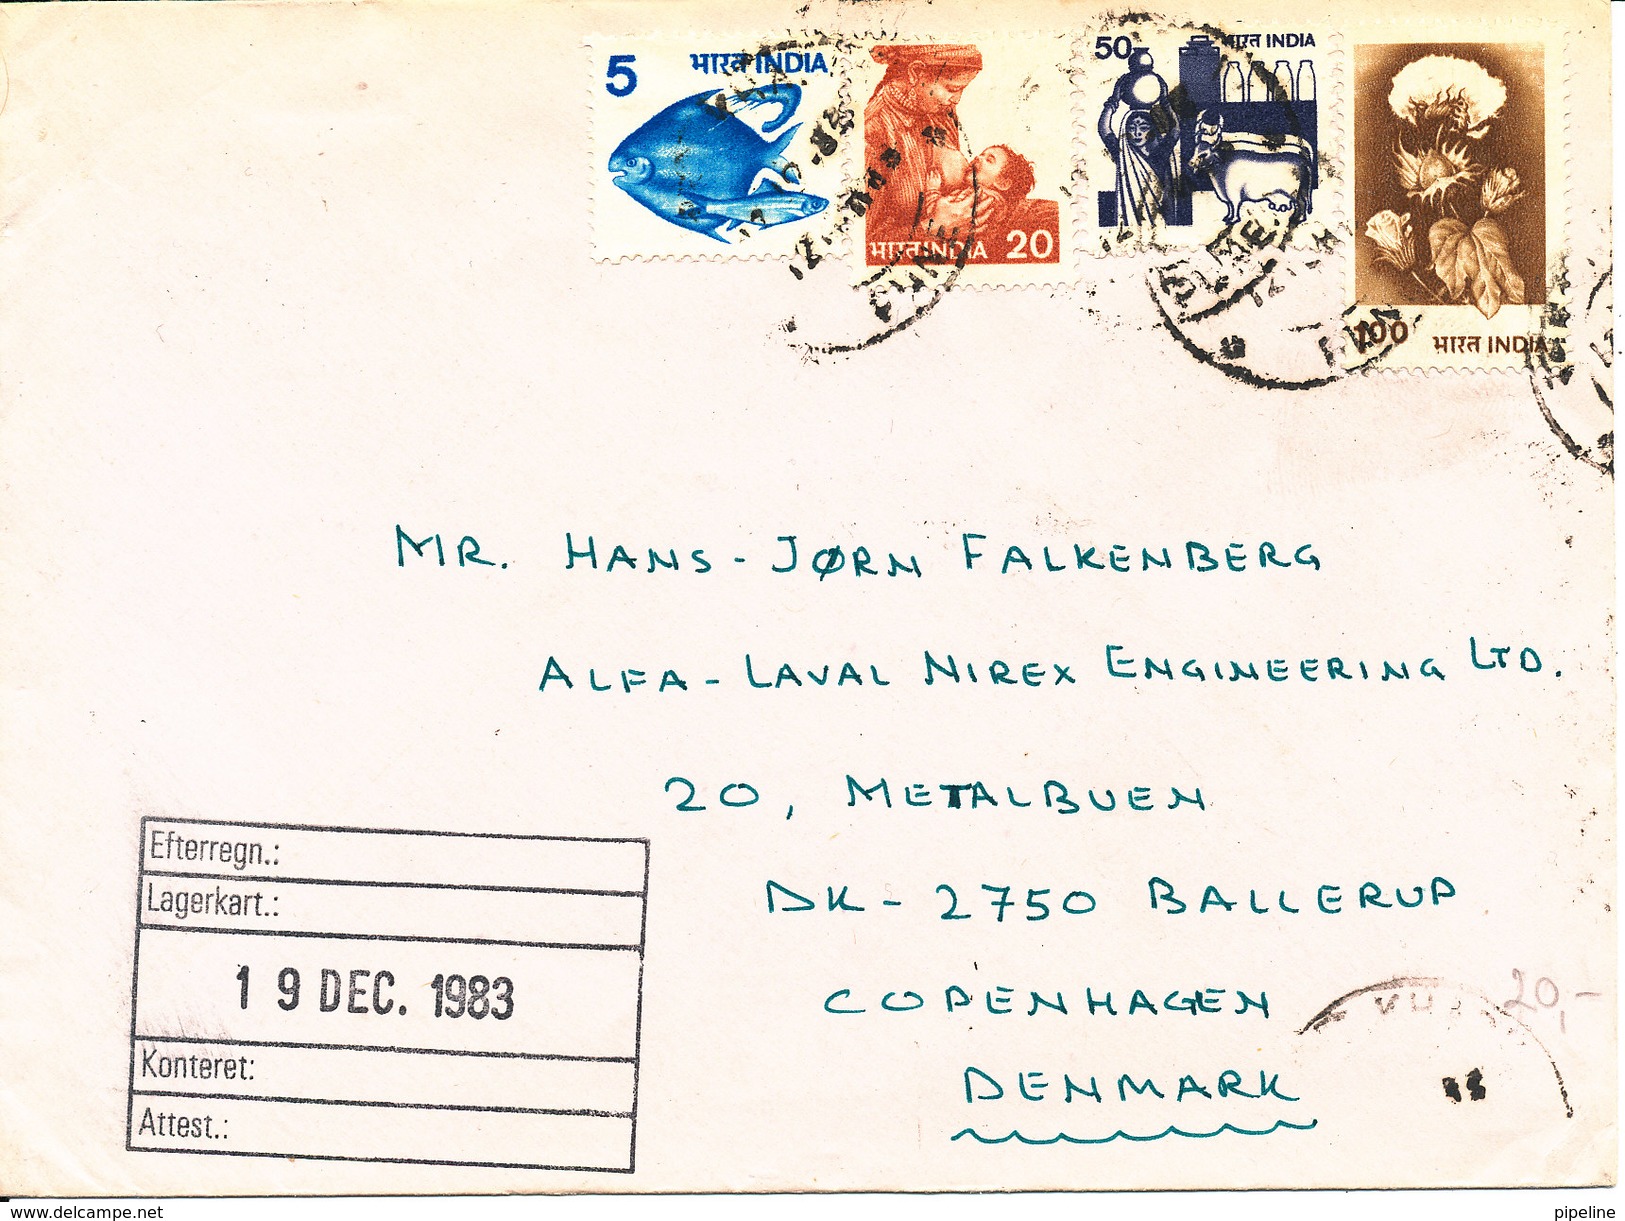 5 भारत INDIA
भारत INDIA 20
50 भारत INDIA
100 भारत INDIA
MR. HANS-JØRN FALKENBERG
ALFA-LAVAL NIREX ENGINEERING LTD.
20, METALBUEN
DK-2750 BALLERUP
COPENHAGEN
DENMARK
Efterregn.:
Lagerkart.:
19 DEC. 1983
Konteret:
Attest.:
20,-
www.delcampe.net
pipeline